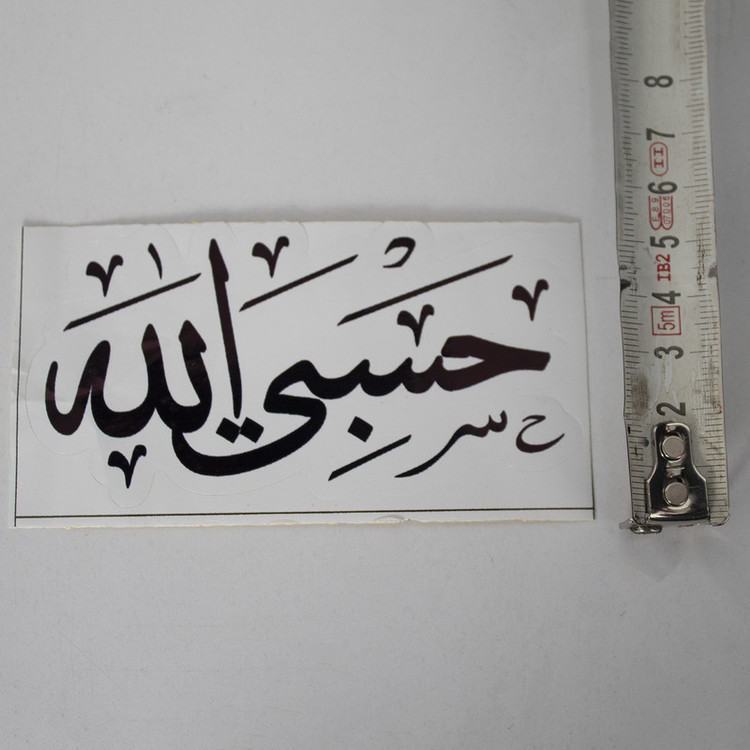 حسبي الله
8
7
II
6
E 89
5
IB2
4
5m
3
2